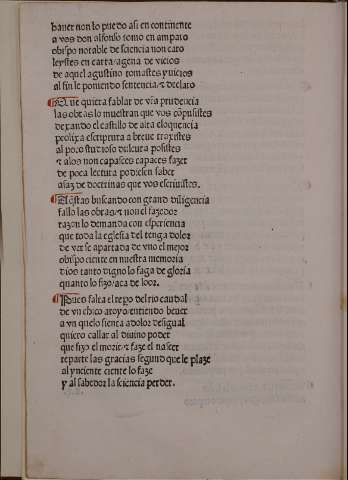 hauer non lo puedo asi en continente
a vos don alfonso tomo en amparo
obispo notable de sciencia non caro
leystes en cartagena de vicios
de aquel agustino tomastes yuicios
al fin le poniendo sentencia ⁊ declaro
Que quiera fablar de vr̄a prudencia
las obras lo muestran que vos cōpusistes
dexando el castillo de alta eloquencia
prolixa escriptura a breue traxistes
al poco studioso dulcura posistes
⁊ alos non capasces capaces fazer
de poca lectura podiesen saber
asaz de doctrinas que vos escriuistes.
Aq̄stas buscando con grand diligencia
fallo las obras ⁊ non el fazedor
razon lo demanda con esperiencia
que toda la eglesia del tenga dolor
de ver se apartada de vno el mejor
obispo ciente en nuestra memoria
dios tanto digno lo faga de gloria
quanto lo fizo aca de loor.
Pues falta el repo del rio caudal
de vn chico arroyo entiendo beuer
a vn quelo sienta a dolor desigual
quiero callar al diuino poder
que fizo el morir ⁊ faze el nascer
reparte las gracias segund que le plaze
al ynciente ciente lo faze
y al sabedor la sciencia perder.